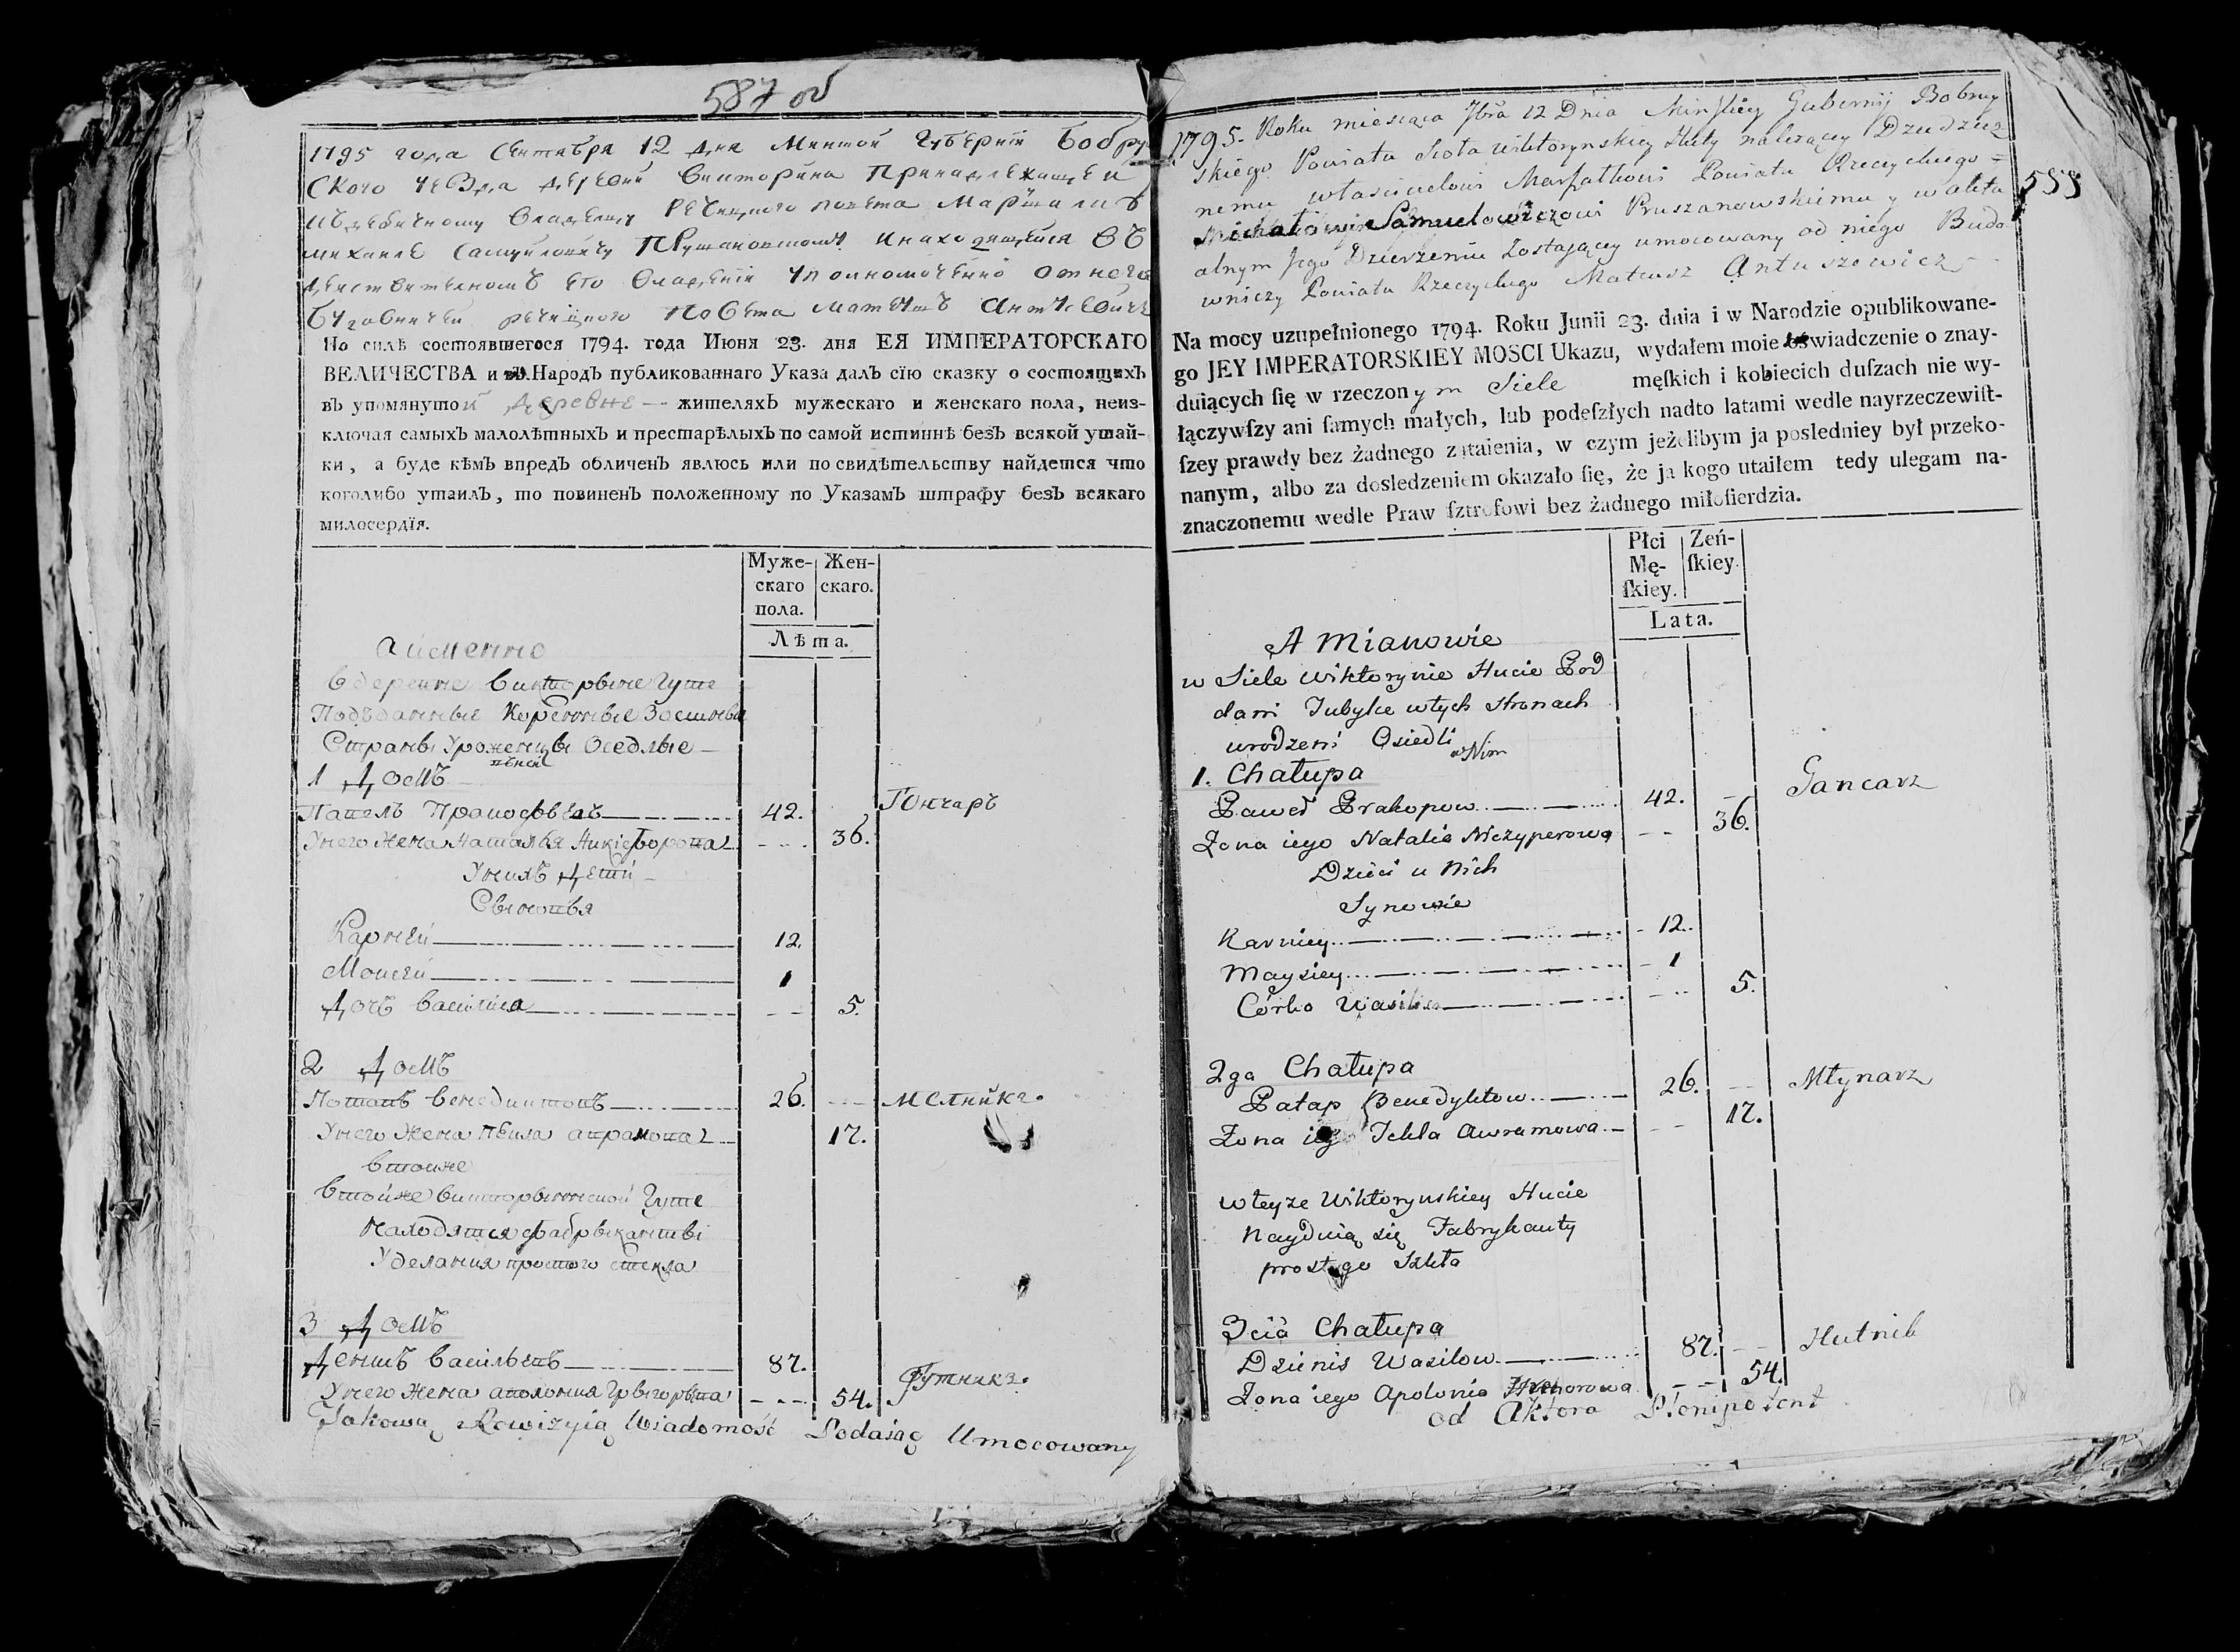 587 об
1795 года Сентября 12 дня Минской Губернии Бобруй
ского уезда деревни Викторина Принадлежащей
Владелцу Речицкого повета Маршалку
михаиле Самуйловичу Прушановскому инаходящейся въ
действителномъ его владении уполномоченно отнего
речицкого повета Матеушъ
По силѣ состоявшегося 1794. года Июня 23. дня ЕЯ ИМПЕРАТОРСКАГО
ВЕЛИЧЕСТВА и въ Народъ публикованнаго Указа далъ сїю сказку о состоящихъ
въ упомянутой деревне — жителяхъ мужескаго и женскаго пола, неиз-
ключая самыхъ малолѣтныхъ и престарѣлыхъ по самой истиннѣ безъ всякой утай-
ки, а буде кѣмъ впредъ обличенъ явлюсь или по свидѣтельству найдется что
коголибо утаилъ, то повиненъ положенному по Указамъ штрафу безъ всякаго
милосердїя.
Муже-
скаго
пола.
Жен-
скаго.
Лѣта.
а имянно
в деревне Викторыне Гуте
Подъданные Коренные
Страны Уроженцы Оседлые
1 Домъ
Павелъ Прокофьевъ 42. Гончаръ
Унего Жена Наталья 36.
Унихъ Дети
Сыновья
Карней 12.
Моисей 1
Дочь Василиса 5.
2 Домъ
Потапъ Бенедиктовъ 26. мелникъ.
Унего Жена 17.
втойже
Втойже Викторынской Гуте
Находятся фабрыканты
Уделания простого стекла
3 Домъ
Денисъ Васильевъ 87. Гутникъ.
Унего Жена аполония Грыгорьева 54.
Takową Rewizyią Wiadomość Podaiąc Umocowany
1795. Roku miesiąca 7bra 12 Dnia Minskiey Gubernij Bobruy
skiego Powiatu Sioła wiktorynskiey Huty należącey Dziedzicz
nemu właścicielowi Marszałkowi Powiatu Rzeczyckiego =
Michałowi Samuelowiczowi Pruszanowskiemu y w aktu
alnym Jego Dzierżeniu Zostającey umocowany od niego Budo
wniczy Powiatu Rzeczyckiego Mateusz Antuszewicz
559
Na mocy uzupełnionego 1794. Roku Junii 23. dnia i w Narodzie opublikowane-
go JEY IMPERATORSKIEY MOSCI Ukazu, wydałem moie oświadczenie o znay-
duiących ſię w rzeczonym Siele męſkich i kobiecich duſzach nie wy-
łączywſzy ani ſamych małych, lub podeſzłych nadto latami wedle nayrzeczewiſt-
ſzey prawdy bez żadnego zataienia, w czym jeżelibym ja posledniey był przeko-
nanym, albo za dosledzeniem okazało ſię, że ja kogo utaiłem tedy ulegam na-
znaczonemu wedle Praw ſztrofowi bez żadnego miłoſierdzia.
Płci
Mę-
ſkiey.
Zeń-
ſkiey.
Lata.
A Mianowie
w Siele Wiktorynie Hucie Pod
dani Tubylce wtych Stronach
urodzeni Osiedli
1. Chałupa w Nim
Paweł Prakopow 42. Gancarz
Zona iego Natalia Niczyperowa 36.
Dzieci u Nich
Synowie
Karniey 12.
Maysiey 1
Córka Wasilisa 5.
2ga Chałupa
Patap Benedyktow 26. Młynarz
Zona iego Tekla Awramowa 17.
wteyze Wiktorynskiey Hucie
Nayduią się Fabrykanty
prostego Szkła
3cia Chałupa
Dzienis Wasilow 87. Hutnik
Zona iego Apolonia 54.
od Aktora Plenipotent